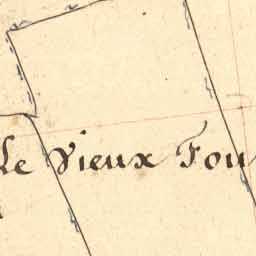 Le Vieux Fou